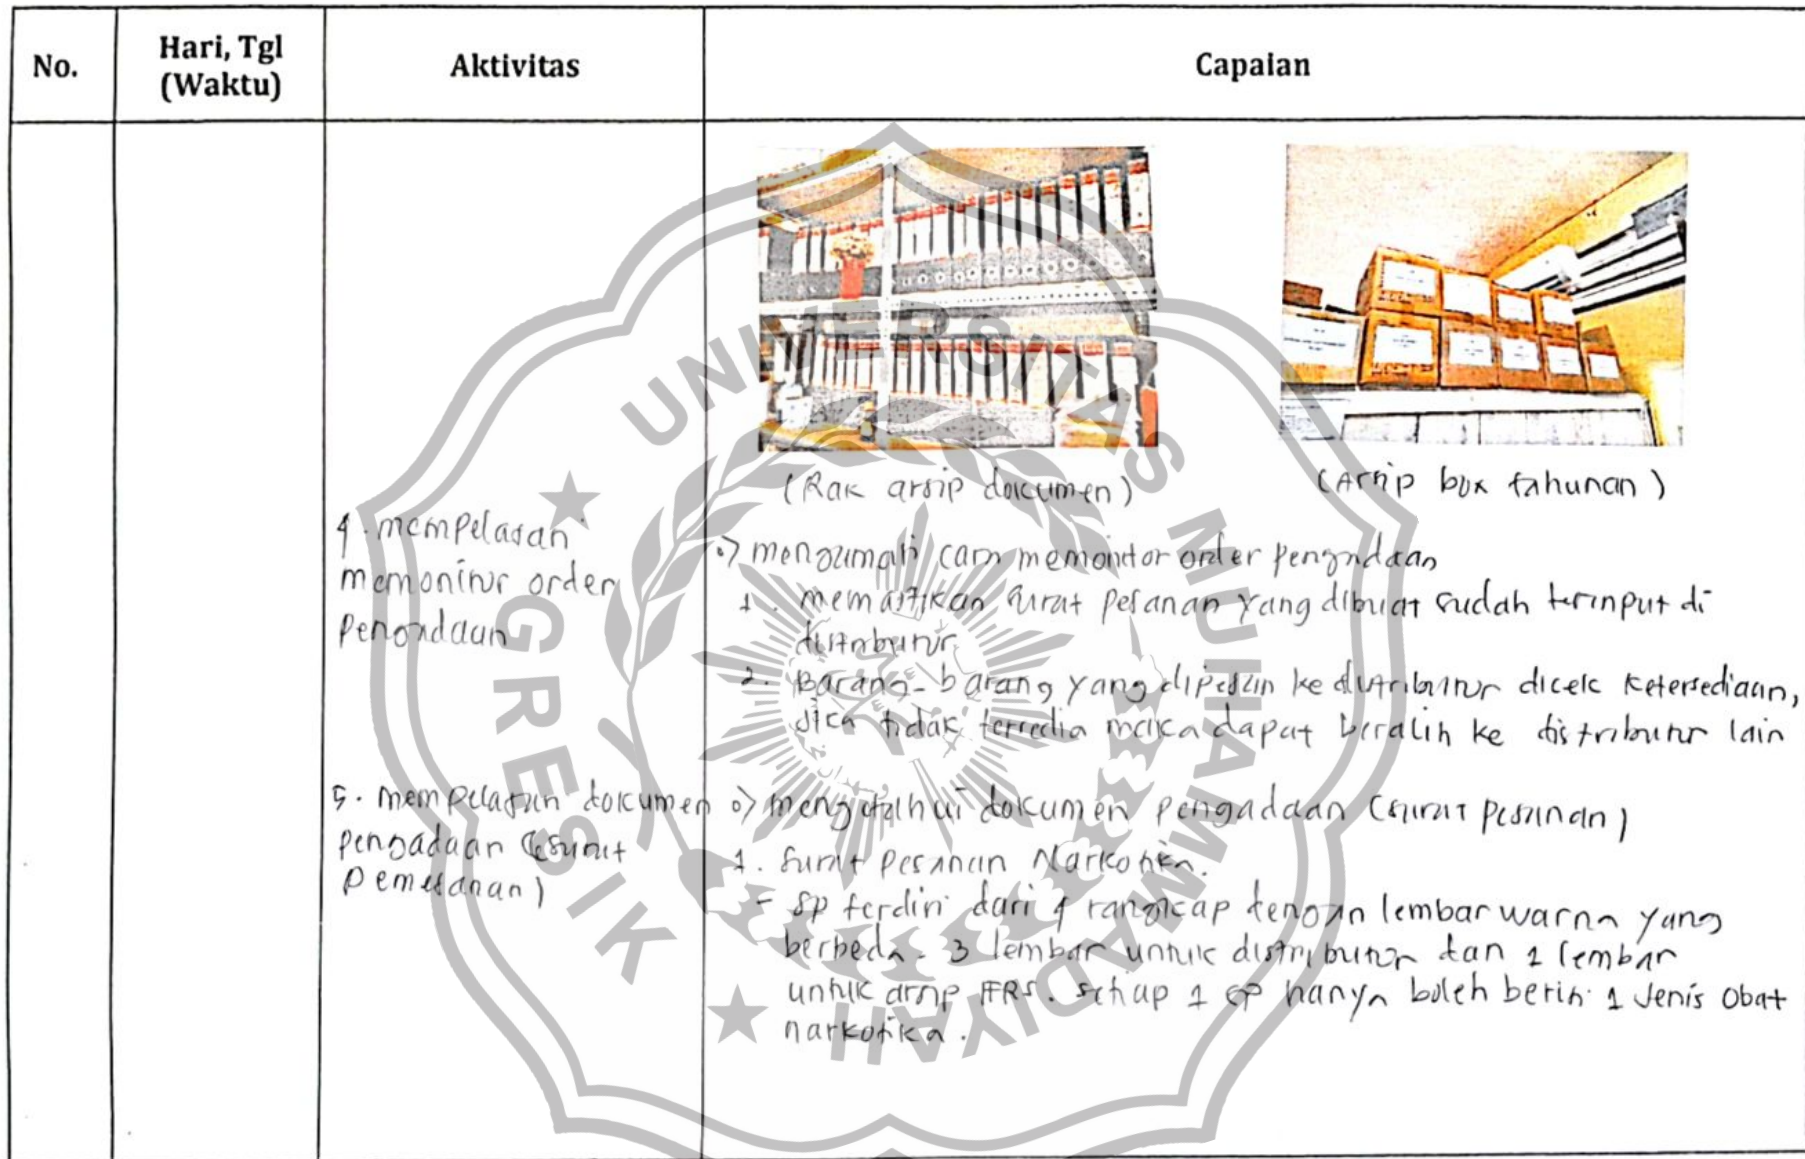 No.
Hari, Tgl
(Waktu)
Aktivitas
Capaian
(Rak arsip dokumen)
(Arsip box tahunan)
4. mempelajari
memonitor order
Pengadaan
o) mengumati cara memonitor order pengadaan
1. memastikan surat pesanan yang dibuat sudah terinput di
distributor
2. Barang-barang yang dipesan ke distributor dicek ketersediaan,
jika tidak tersedia maka dapat beralih ke distributor lain
5. mempelajari dokumen
pengadaan (surat
pemesanan)
o) mengetahui dokumen pengadaan (surat pesanan)
1. Surat Pesanan Narkotika.
- SP terdiri dari 4 rangkap dengan lembar warna yang
berbeda - 3 lembar untuk distributor dan 1 lembar
untuk arsip IFRS. setiap 1 SP hanya boleh berisi 1 jenis obat
narkotika.
UNIVERSITAS MUHAMMADIYAH
GRESIK